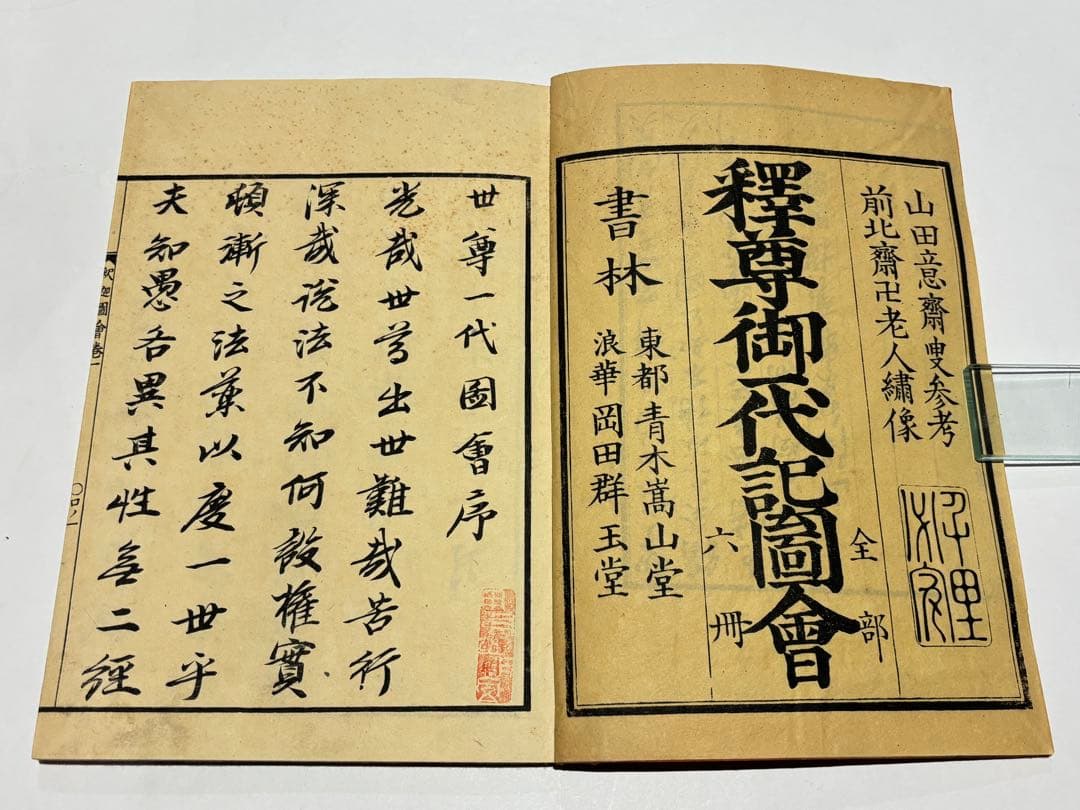 山田意齋叟參考
前北齋卍老人繡像
全部
釋尊御一代記圖會
六冊
書林
東都青木嵩山堂
浪華岡田群玉堂
世尊一代圖會序
光哉世尊出世難哉苦行
深哉說法不知何設權實
頓漸之法薫以度一世乎
夫知愚各異其性無二經
釈迦圖會卷一